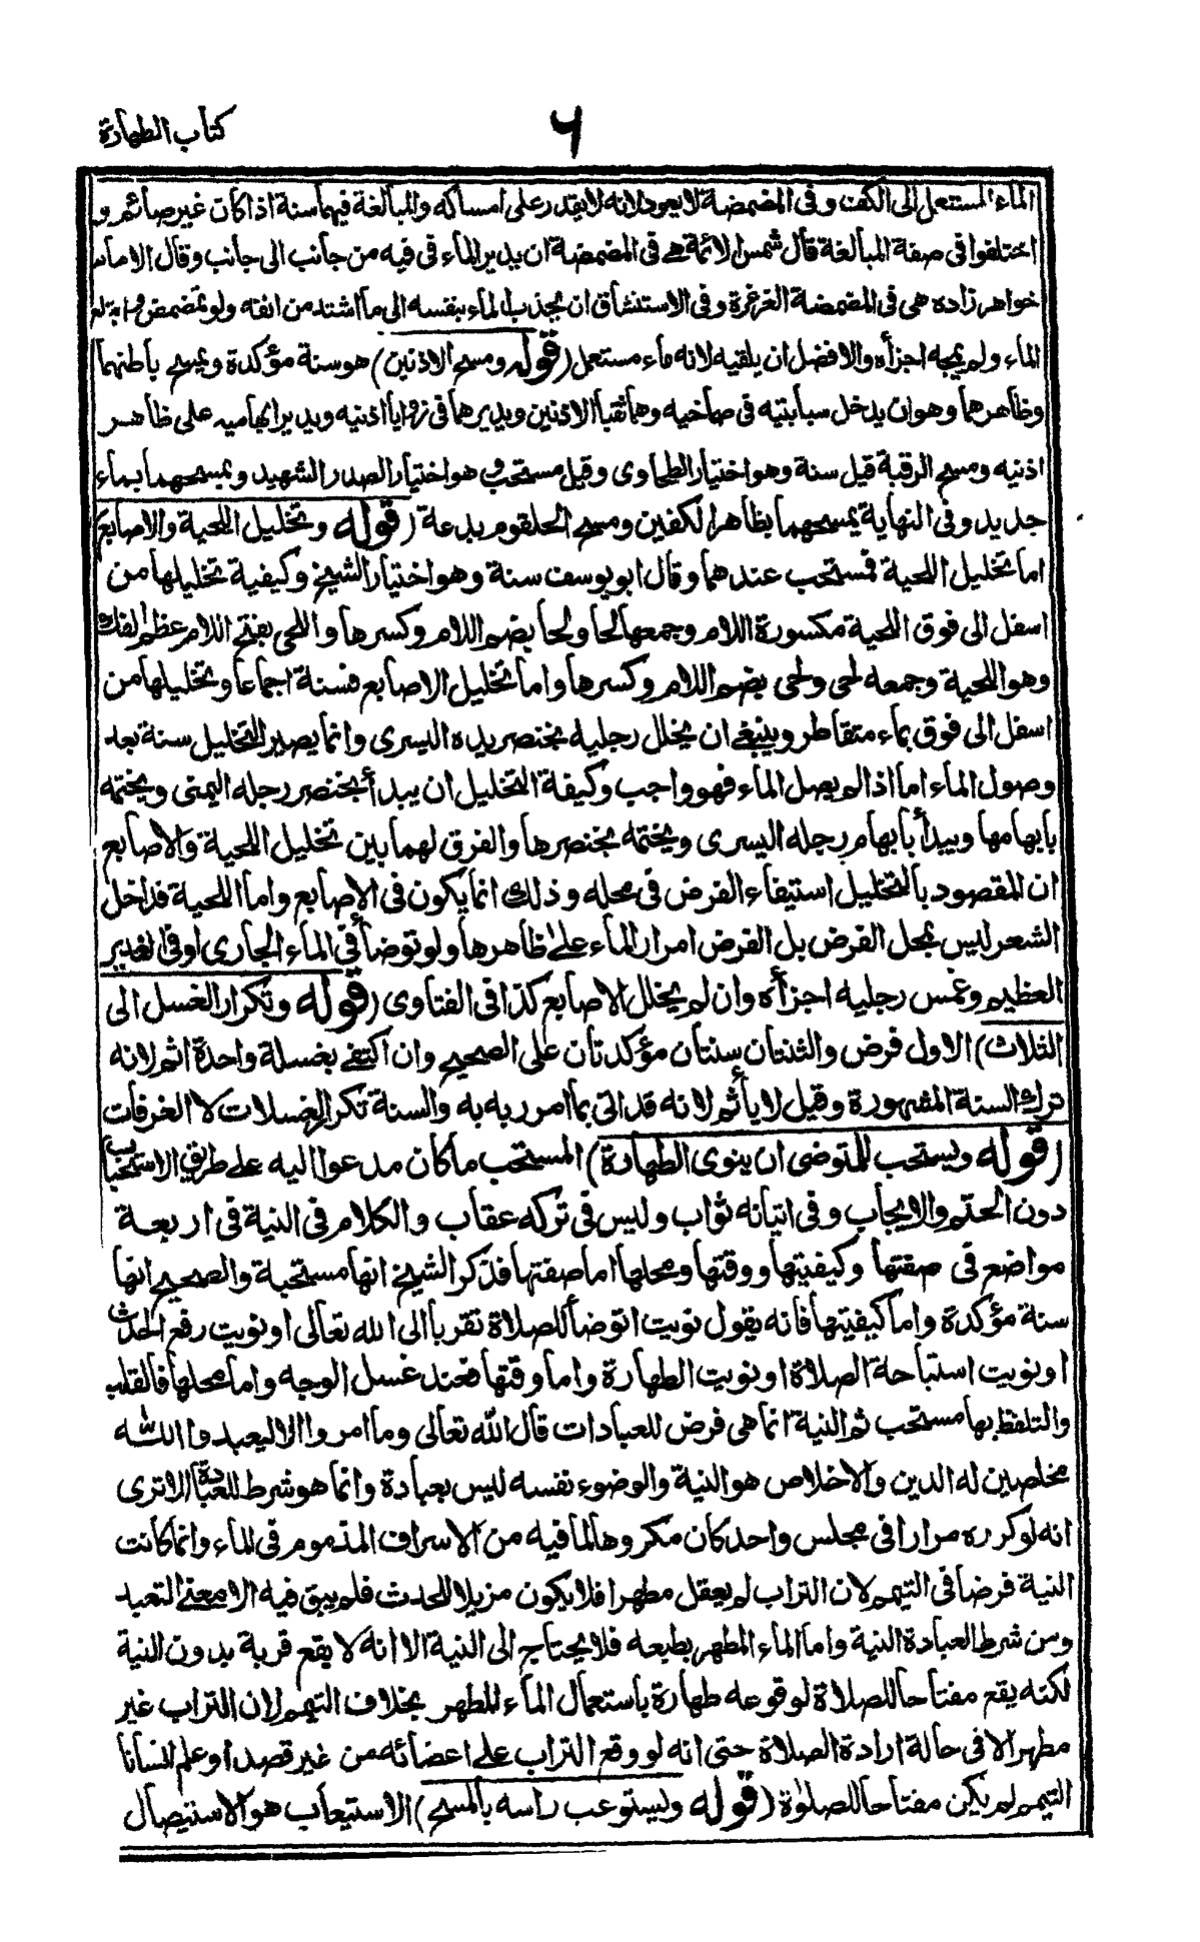 كتاب الطهارة
٦
الماء المستعمل الى الكف وفى المضمضة لا يعود لانه لا يقدر على امساكه والمبالغة فيهما سنة اذا كان غير صائم و
اختلفوا فى صفة المبالغة قال شمس الائمة هى فى المضمضة ان يدير الماء فى فيه من جانب الى جانب وقال الامام
خواهر زاده هى فى المضمضة الغرغرة وفى الاستنشاق ان يجذب الماء بنفسه الى ما اشتد من انفه ولو تمضمض وابتلع
الماء ولم يمجه اجزأه والافضل ان يلقيه لانه ماء مستعمل (قوله ومسح الاذنين) هو سنة مؤكدة ويمسح باطنهما
وظاهرهما وهو ان يدخل سبابتيه فى صماخيه وهما ثقبا الاذنين ويديرهما فى زوايا اذنيه ويدير ابهاميه على ظاهر
اذنيه ومسح الرقبة قيل سنة وهو اختيار الطحاوى وقيل مستحب وهو اختيار الصدر الشهيد ويمسحهما بماء
جديد وفى النهاية يمسحهما بظاهر الكفين ومسح الحلقوم بدعة (قوله وتخليل اللحية والاصابع)
اما تخليل اللحية فمستحب عندهما وقال ابو يوسف سنة وهو اختيار الشيخ وكيفية تخليلها من
اسفل الى فوق اللحية مكسورة اللام وجمعها لحا ولحا بضم اللام وكسرها واللحى بفتح اللام عظم الفك
وهو اللحية وجمعه لحى ولحى بضم اللام وكسرها واما تخليل الاصابع فسنة اجماعا وتخليلها من
اسفل الى فوق بماء متقاطر وينبغى ان يخلل رجليه بخنصر يده اليسرى وانما يصير التخليل سنة بعد
وصول الماء اما اذا لم يصل الماء فهو واجب وكيفة التخليل ان يبدأ بخنصر رجله اليمنى ويختمه
بابهامها ويبدأ بابهام رجله اليسرى ويختمه بخنصرها والفرق لهما بين تخليل اللحية والاصابع
ان المقصود بالتخليل استيفاء الفرض فى محله وذلك انما يكون فى الاصابع واما اللحية فداخل
الشعر ليس بمحل الفرض بل الفرض امرار الماء على ظاهرها ولو توضأ فى الماء الجارى او فى الغدير
العظيم وغمس رجليه اجزأه وان لم يخلل الاصابع كذا فى الفتاوى (قوله وتكرار الغسل الى
الثلاث) الاول فرض والثنتان سنتان مؤكدتان على الصحيح وان اكتفى بغسلة واحدة اثم لانه
ترك السنة المشهورة وقيل لا يأثم لانه قد اتى بما امر ربه به والسنة تكرار الغسلات لا الغرفات
(قوله ويستحب للمتوضى ان ينوى الطهارة) المستحب ما كان مدعوا اليه على طريق الاستحباب
دون الحتم والايجاب وفى اتيانه ثواب وليس فى تركه عقاب والكلام فى النية فى اربعة
مواضع فى صفتها وكيفيتها ووقتها ومحلها اما صفتها فذكر الشيخ انها مستحبة والصحيح انها
سنة مؤكدة واما كيفيتها فانه يقول نويت اتوضأ للصلاة تقربا الى الله تعالى او نويت رفع الحدث
او نويت استباحة الصلاة او نويت الطهارة واما وقتها فعند غسل الوجه واما محلها فالقلب
والتلفظ بها مستحب ثم النية انما هى فرض للعبادات قال الله تعالى وما امروا الا ليعبدوا الله
مخلصين له الدين والاخلاص هو النية والوضوء نفسه ليس بعبادة وانما هو شرط للعبادة الا ترى
انه لو كرره مرارا فى مجلس واحد كان مكروها لما فيه من الاسراف المذموم فى الماء وانما كانت
النية فرضا فى التيمم لان التراب لم يعقل مطهرا فلا يكون مزيلا للحدث فلم يبق فيه الا معنى التعبد
ومن شرط العبادة النية واما الماء المطهر بطبعه فلا يحتاج الى النية الا انه لا يقع قربة بدون النية
لكنه يقع مفتاحا للصلاة لوقوعه طهارة باستعمال الماء للمطهر بخلاف التيمم لان التراب غير
مطهر الا فى حالة ارادة الصلاة حتى انه لو وقع التراب على اعضائه من غير قصد او علم انسانا
التيمم لم يكن مفتاحا للصلوٰة (قوله ويستوعب راسه بالمسح) الاستيعاب هو الاستيصال